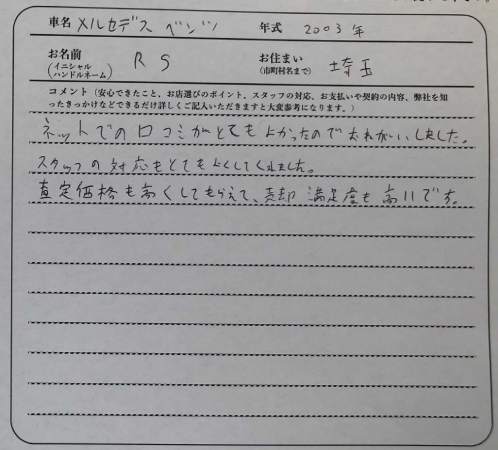 車名 メルセデス ベンツ 年式 2003年
お名前 R S お住まい 埼玉
(イニシャル ハンドルネーム) (市町村名まで)
コメント（安心できたこと、お店選びのポイント、スタッフの対応、お支払いや契約の内容、弊社を知
ったきっかけなどできるだけ詳しくご記入いただきますと大変参考になります。）
ネットでの口コミがとてもよかったのでおねがいしました。
スタッフの対応もとてもよくしてくれました。
査定価格も高くしてもらえて、売却満足度も高いです。